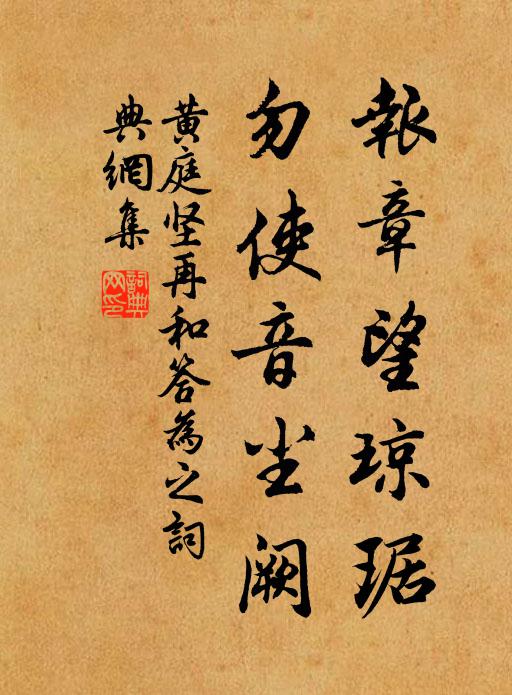 報章望琼琚
勿使音尘阙
黄庭坚再和答為之詞
典網集
詞典
网印